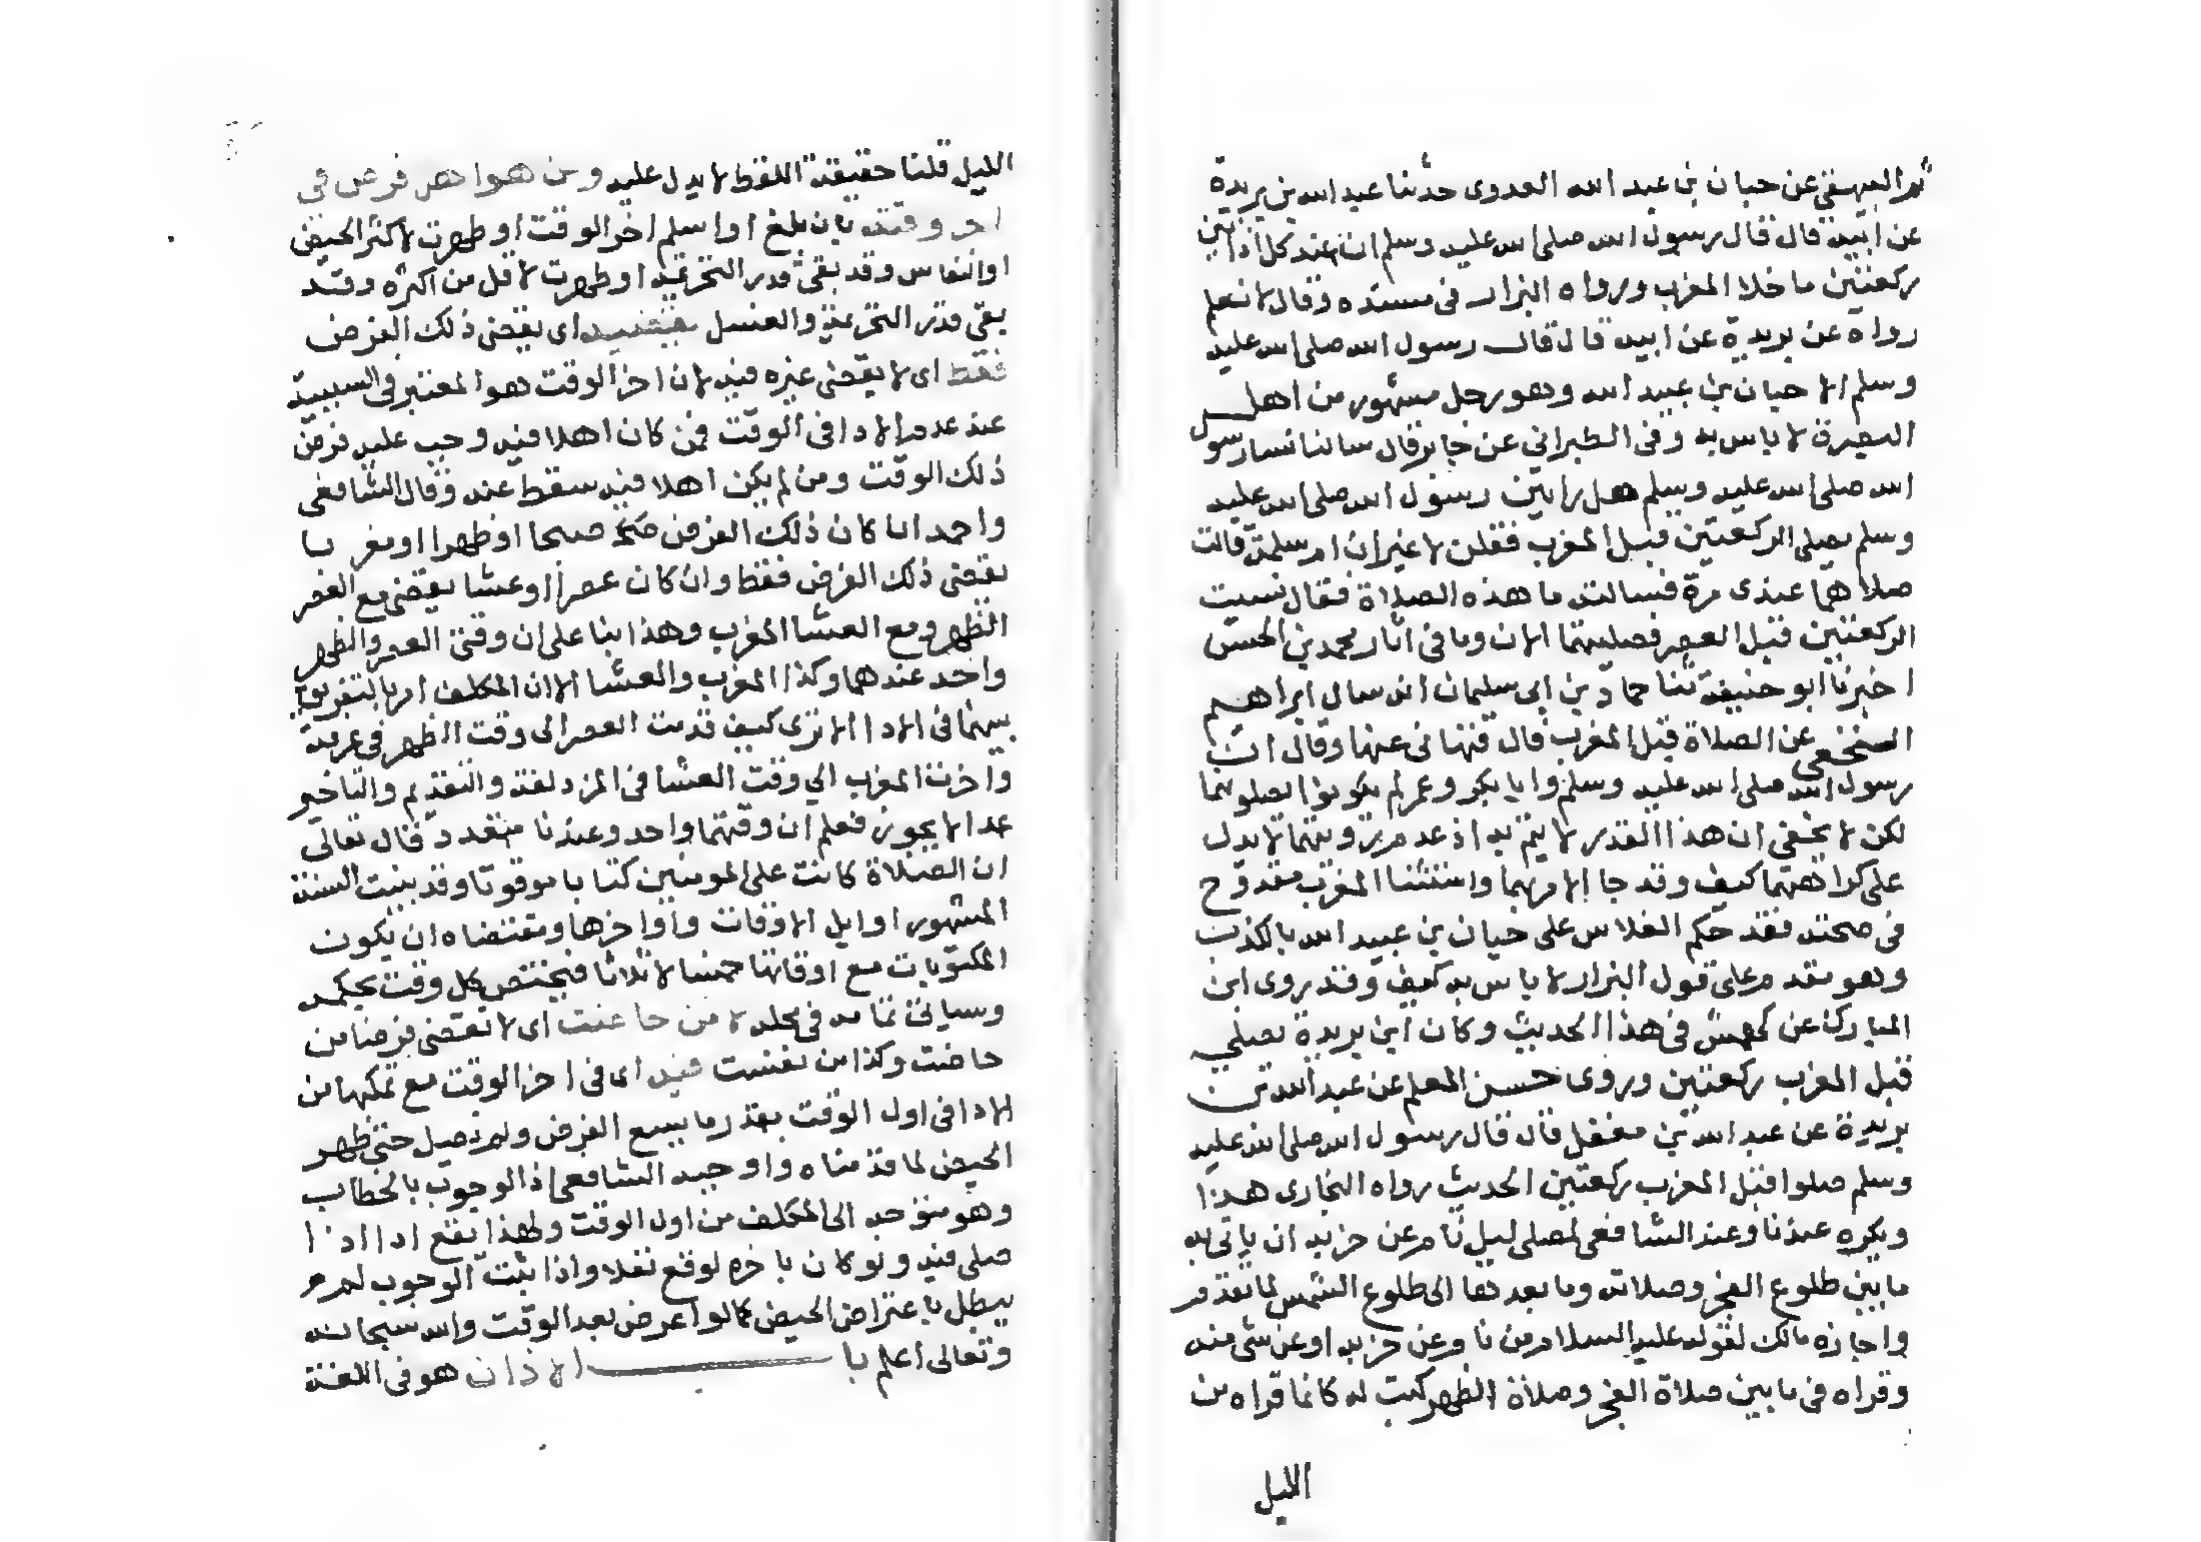 ثم البيهقي عن حبان بن عبد الله العدوى حدثنا عبد الله بن بريدة
عن ابيه قال قال رسول الله صلى الله عليه وسلم ان عند كل اذانين
ركعتين ما خلا المغرب ورواه البزار فى مسنده وقال لا نعلم
رواه عن بريدة عن ابيه قال قال رسول الله صلى الله عليه
وسلم الا حيان بن عبيد الله وهو رجل مشهور من اهل
البصرة لا باس به وفى الطبرانى عن جابر قال سالنا نسا رسول
الله صلى الله عليه وسلم هل رايتن رسول الله صلى الله عليه
وسلم يصلى الركعتين قبل المغرب فقلن لا غير ان ام سلمة قالت
صلاهما عندى مرة فسالته ما هذه الصلاة فقال نسيت
الركعتين قبل العصر فصليتهما الان وما فى اثار محمد بن الحسن
اخبرنا ابو حنيفة ثنا حماد بن ابى سليمان انه سال ابراهيم
النخعي عن الصلاة قبل المغرب قال فنهانى عنها وقال ان
رسول الله صلى الله عليه وسلم وابا بكر وعمر لم يكونوا يصلونها
لكن لا يخفى ان هذا القدر لا يتم به اذ عدم رؤيتهما لا يدل
على كراهتهما كيف وقد جا الامر بهما واستثنا المغرب مقدوح
فى صحته فقد حكم الفلاس على حيان بن عبيد الله بالكذب
وهو مقدم على قول البزار لا باس به كيف وقد روى ابن
المبارك عن كهمس فى هذا الحديث وكان ابن بريدة يصلي
قبل المغرب ركعتين وروى حسن المعلم عن عبد الله بن
بريدة عن عبد الله بن مغفل قال قال رسول الله صلى الله عليه
وسلم صلوا قبل المغرب ركعتين الحديث رواه البخارى هذا
ويكره عندنا وعند الشافعى لمصلى ليل نام عن حزبه ان ياتى به
ما بين طلوع الفجر وصلاته وما بعدها الى طلوع الشمس لما تقدم
واجازه مالك لقوله عليه السلام من نام عن حزبه او عن شى منه
وقراه فى ما بين صلاة الفجر وصلاة الظهر كتب له كانما قراه من
الليل
الليل قلنا حقيقة اللفظ لا يدل عليه ومن هو اهل فرض فى
اخر وقته بان بلغ او اسلم اخر الوقت او طهرت لاكثر الحيض
او النفاس وقد بقى قدر التحريمة او طهرت لاقل من اكثره وقد
بقى قدر التحريمة والغسل يقضيه اى يقضى ذلك الفرض
فقط اى لا يقضى غيره فيه لان اخر الوقت هو المعتبر فى السببية
عند عدم الادا فى الوقت فمن كان اهلا فيه وجب عليه فرض
ذلك الوقت ومن لم يكن اهلا فيه سقط عنه وقال الشافعى
واحمد ان كان ذلك الفرض صبحا او ظهرا او مغربا
يقضى ذلك الفرض فقط وان كان عصرا او عشا يقضى مع العصر
الظهر ومع العشا المغرب وهذا بنا على ان وقتى العصر والظهر
واحد عندهما وكذا المغرب والعشا الا ان المكلف امر بالتفريق
بينهما فى الادا الا ترى كيف قدمت العصر الى وقت الظهر فى عرفة
واخرت المغرب الي وقت العشا فى المزدلفة والتقديم والتاخير
عمدا لا يجوز فعلم ان وقتهما واحد وعندنا متعدد قال تعالى
ان الصلاة كانت على المومنين كتابا موقوتا وقد بينت السنة
المشهورة اوايل الاوقات واواخرها ومقتضاه ان يكون
المكتوبات مع اوقاتها خمسا لا ثلاثا فيختص كل وقت بحكمه
وسياتى تمامه فى محله لا من حاضت اى لا تقضى فرضا من
حاضت وكذا من نفست فيه اى فى اخر الوقت مع تمكنها من
الادا فى اول الوقت بقدر ما يسع الفرض ولم تصل حتى ظهر
الحيض لما قدمناه واوجبه الشافعى اذ الوجوب بالخطاب
وهو متوجه الى المكلف من اول الوقت ولهذا يقع ادا اذا
صلى فيه ولو كان باخره لوقع نفلا واذا ثبت الوجوب لم
يبطل باعتراض الحيض كما لو اعرض بعد الوقت والله سبحانه
وتعالى اعلم باب الاذان هو فى اللغة